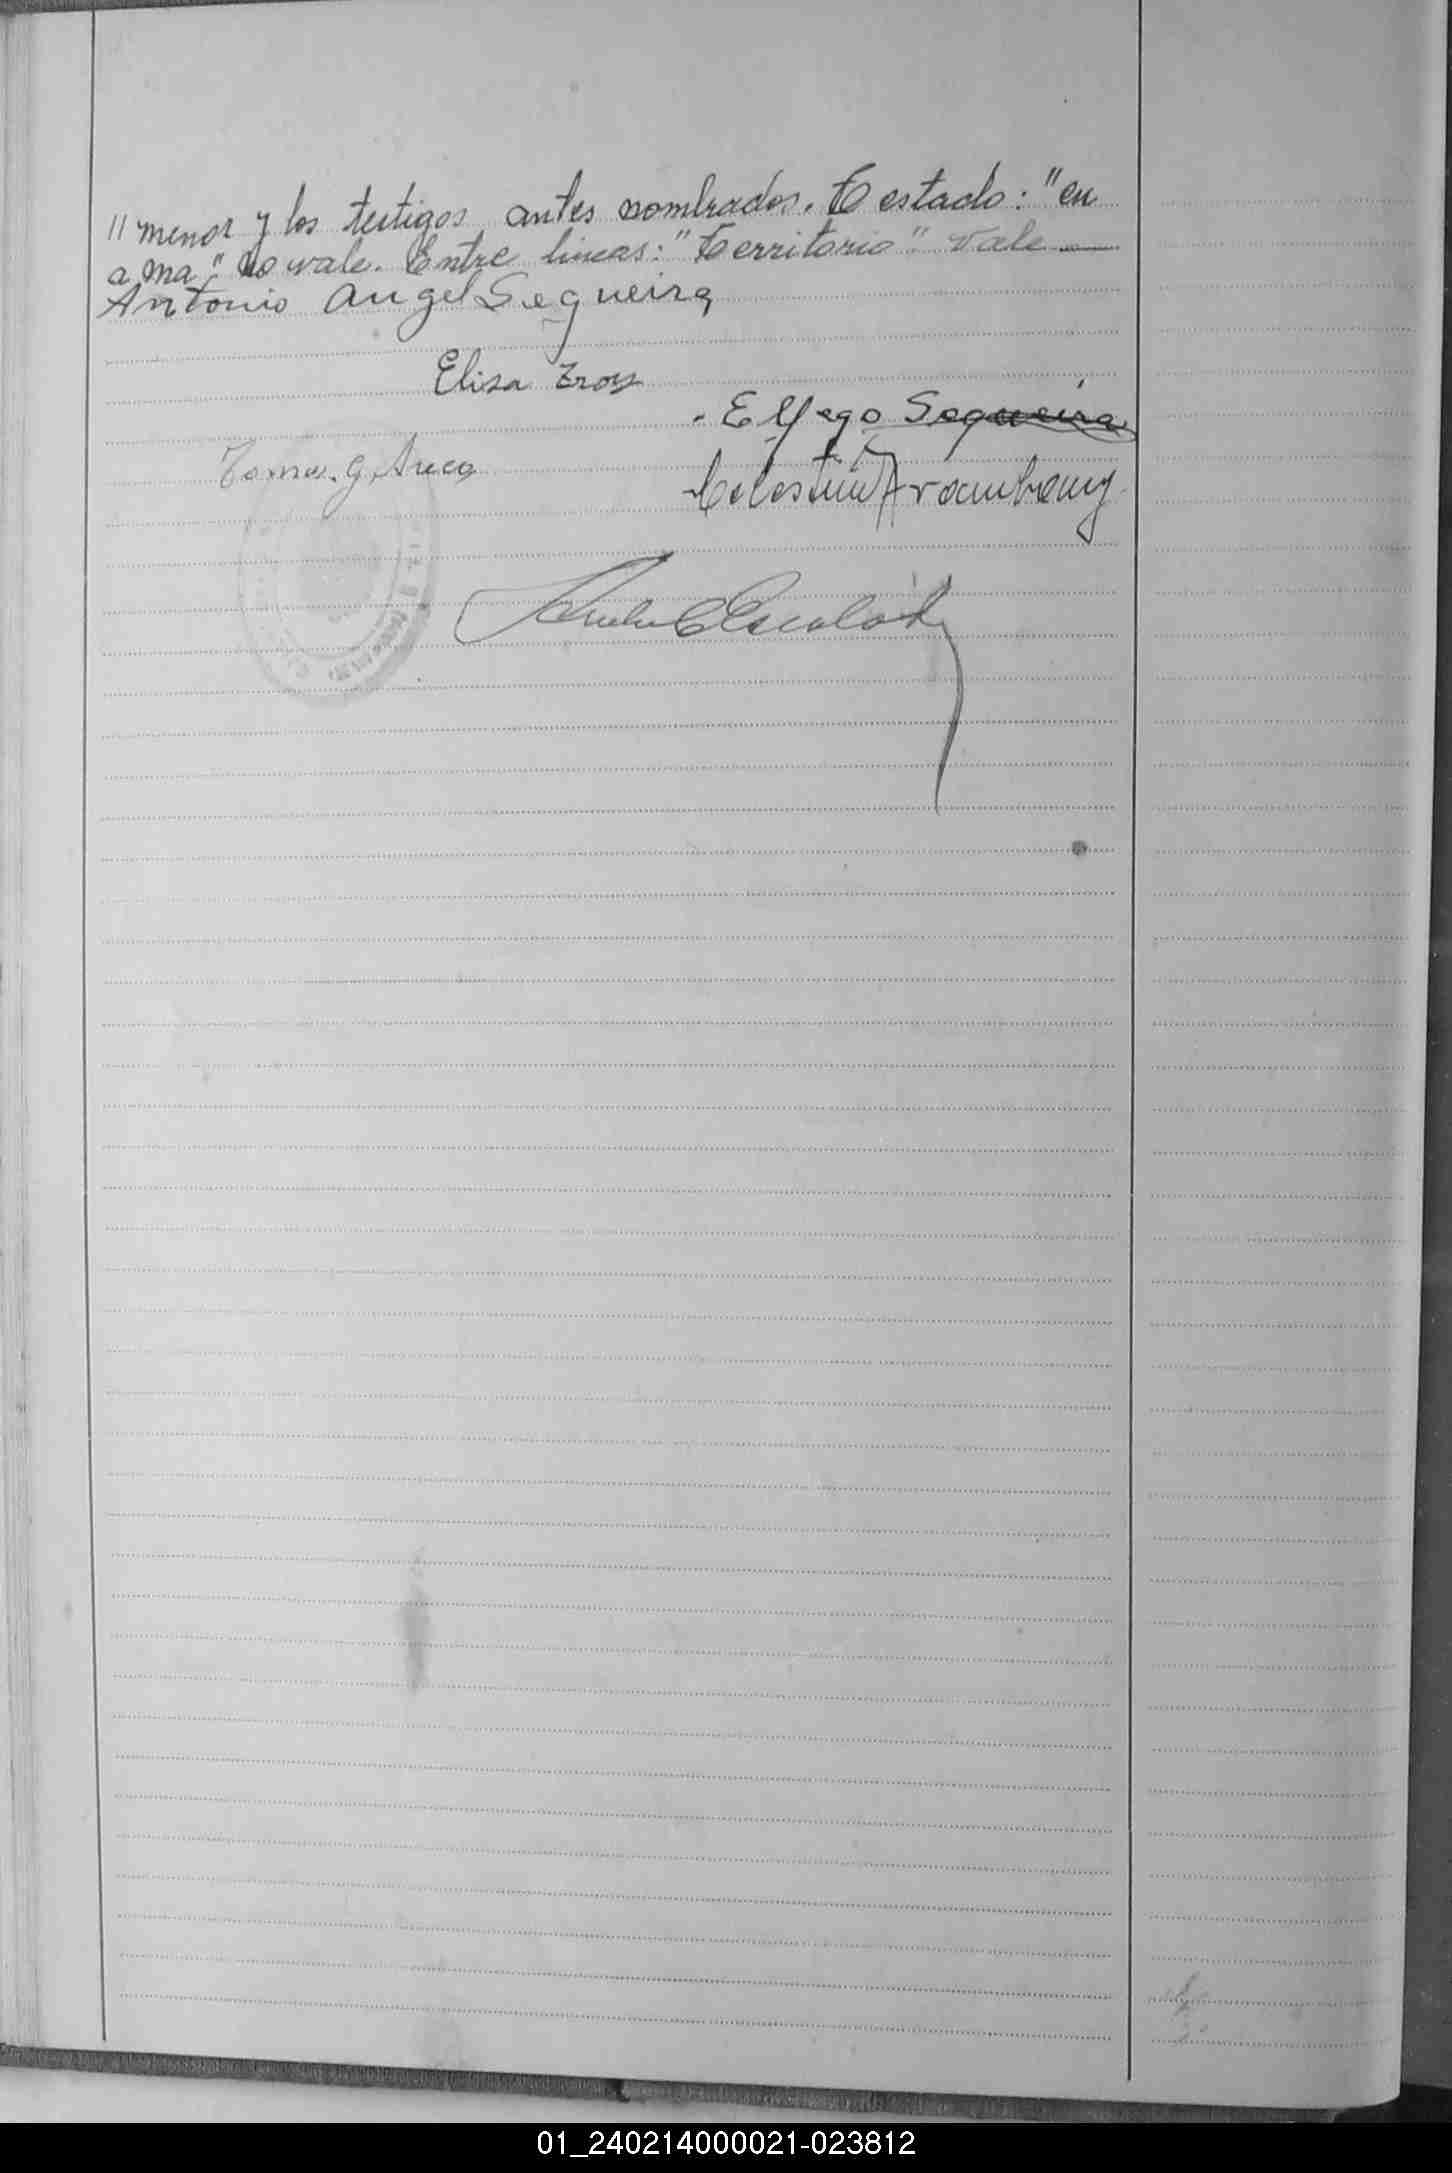 "menor y los testigos antes nombrados. Testado: "en
a ma" no vale. Entre lineas: "Territorio". Vale
Antonio Angel Sequeira
Elisa Troy
Elfego Sequeira
Tomas. G. Areco
Celestin Arambany
Escalad
01_240214000021-023812